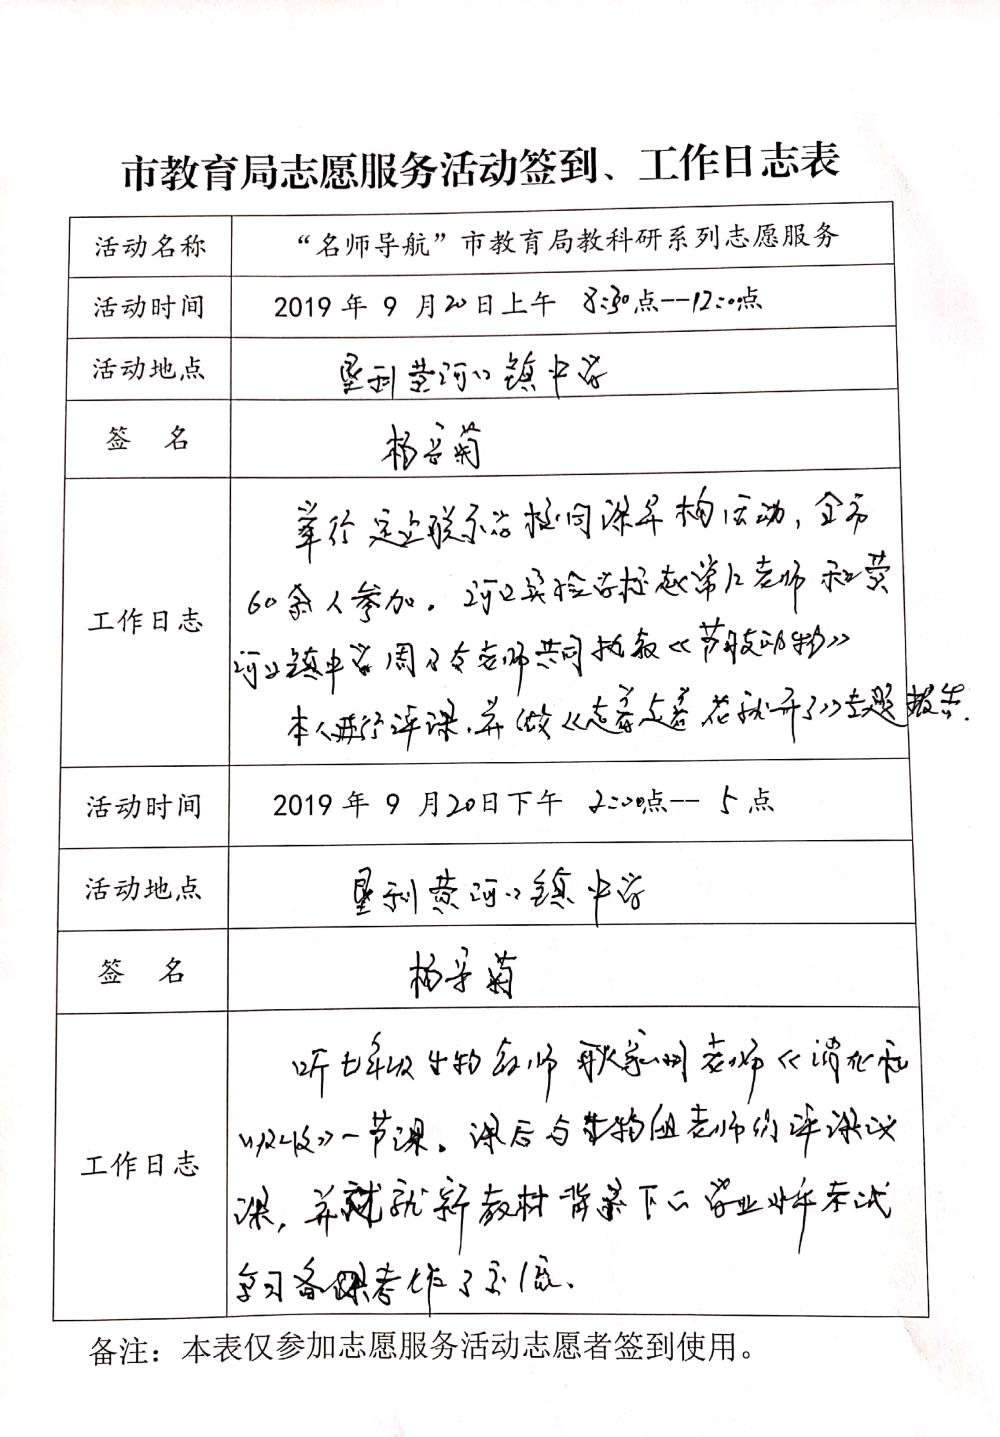 市教育局志愿服务活动签到、工作日志表
活动名称 “名师导航”市教育局教科研系列志愿服务
活动时间 2019年9月20日上午 8:30点--12:00点
活动地点 垦利黄河口镇中学
签 名 杨采菊
工作日志
举行定点联系学校同课异构活动，全市
60余人参加。河口实验学校赵常仁老师和黄
河口镇中学周 老师共同执教《节肢动物》
本人进行评课，并做《 花就开了》专题报告.
活动时间 2019年9月20日下午 2:00点--5点
活动地点 垦利黄河口镇中学
签 名 杨采菊
工作日志
听七年级生物教师耿 老师《消化和
吸收》一节课。课后与生物组老师们评课议
课，并就新教材背景下的学业水平考试
复习备课考作了交流.
备注：本表仅参加志愿服务活动志愿者签到使用。